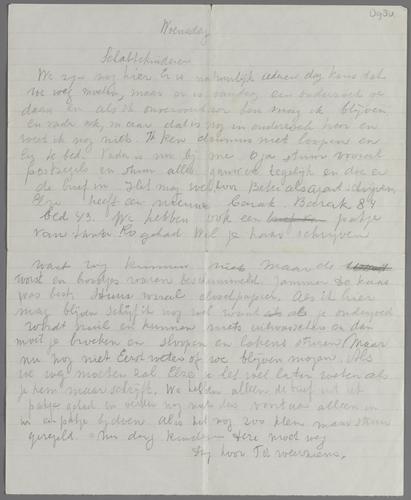 Woensdag
Schattekinderen
We zijn nog hier. Er is natuurlijk iederen dag kans dat
we weg moeten, maar er is vandaag een onderzoek ge
daan en als ik onvervoerbaar ben mag ik blijven
En vader ook, maar dat is nog in onderzoek hoor en
weet ik nog niets. Ik kan niet loopen en
lig te bed. Vader is nu bij me. O ja stuur vooral
postzegels en stuur alles tegelijk en doe er
de brief in. Het mag wel hoor Beter als apart schrijven
Elze heeft een nieuwe Barak. Barak 84
bed 43. We hebben ook een pakje
van tante Ro gehad. Wil je haar schrijven
want wij kunnen niet. Maar de
worst en boodjes waren beschimmeld. Jammer. De kaas
was best. Stuur vooral closetpapier. Als ik hier
mag blijven schrijf ik nog wel want als je ondergoed
wordt vuil en kunnen niets uitwasschen en dan
moet je broeken en sloopen en lakens sturen. Maar
nu nog niet. Eerst weten of we blijven mogen. Als
we weg moeten zal Elze je het wel laten weten als
je hem maar schrijft. We hebben alleen de brief uit het
pakje gehad en verder nog niets dus voortaan alleen in
in een pakje bijdoen. Al is het nog zoo klein maar
geregeld. Nu dag kinderen deze moet weg